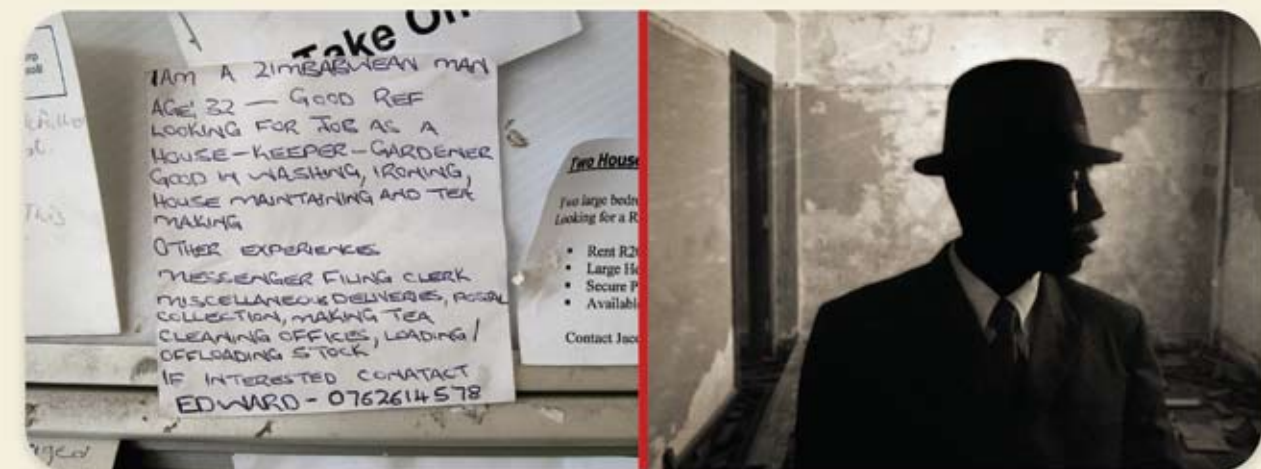 Take
I AM A ZIMBABWEAN MAN
AGE; 32 — GOOD REF
LOOKING FOR JOB AS A
HOUSE-KEEPER-GARDENER
GOOD IN WASHING, IRONING,
HOUSE MAINTAINING AND TEA
MAKING
OTHER EXPERIENCES
MESSENGER FILING CLERK
MISCELLANEOUS DELIVERIES, POSTAL
COLLECTION, MAKING TEA
CLEANING OFFICES, LOADING/
OFFLOADING STOCK
IF INTERESTED CONATACT
EDWARD - 0762614578
Two House
Two large bedr
Looking for a R
• Rent R2
• Large H
• Secure P
• Availabl
Contact Jac